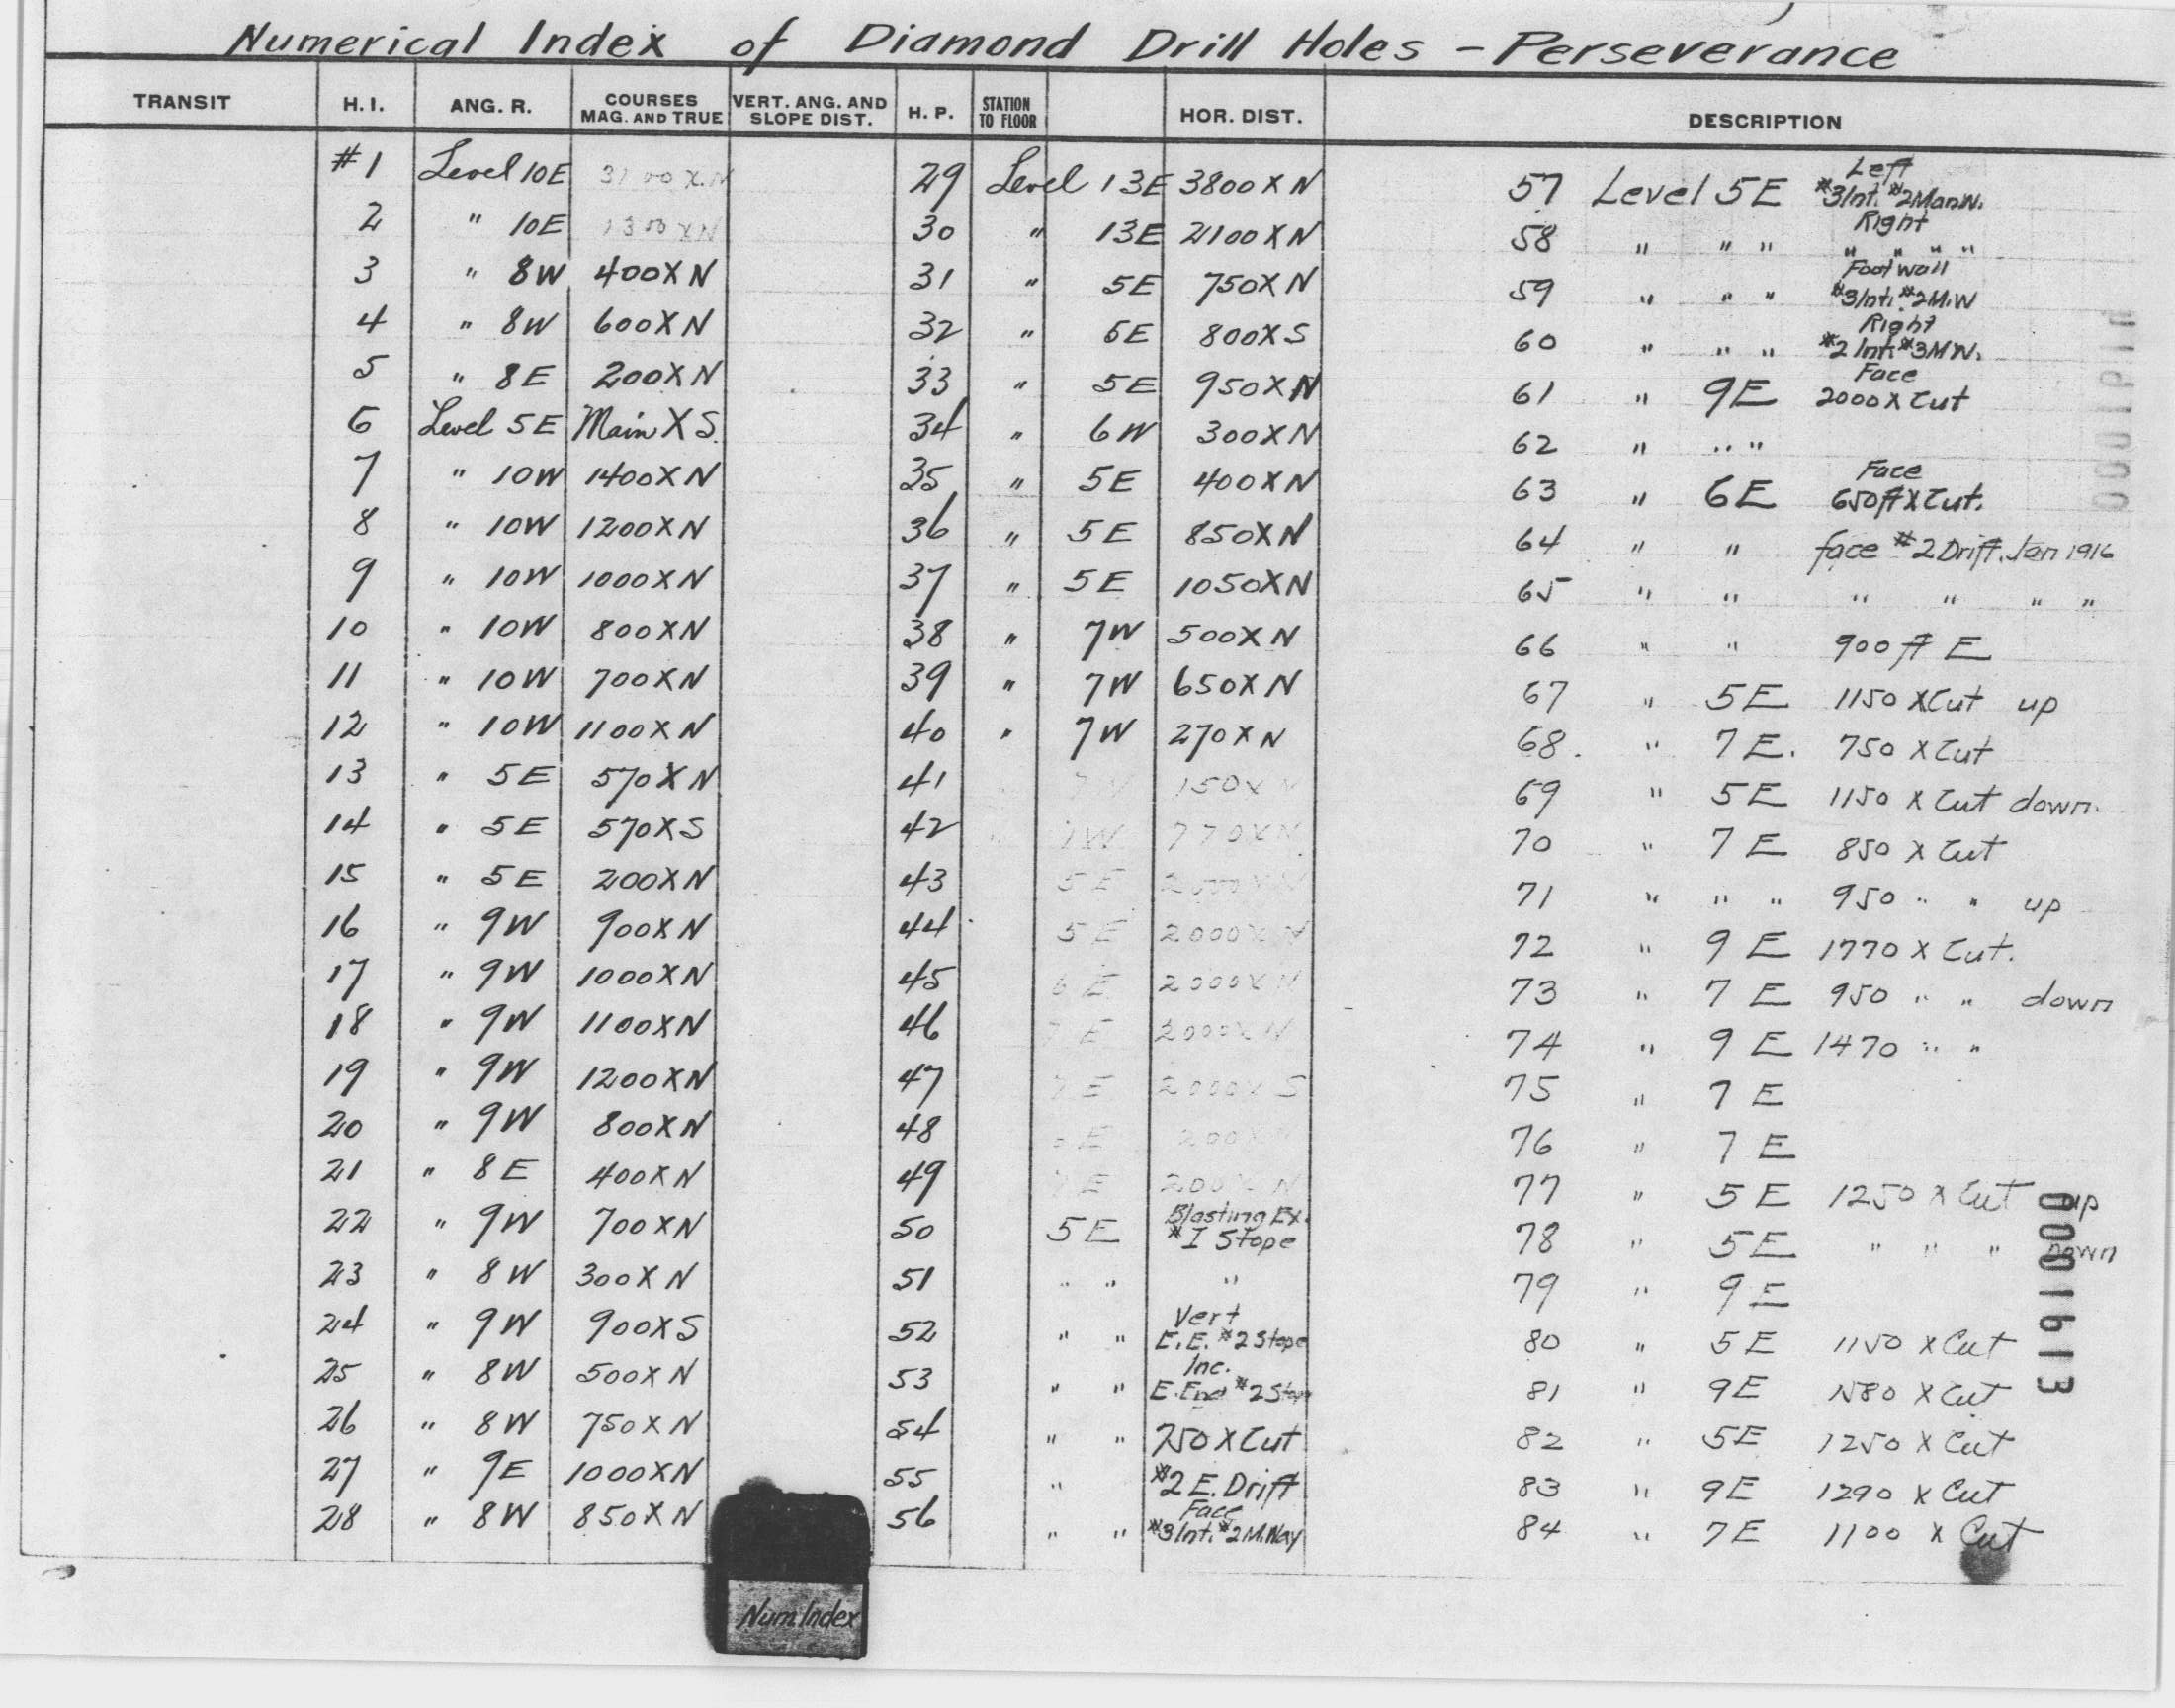 Numerical Index of Diamond Drill Holes - Perseverance
TRANSIT H. I. ANG. R. COURSES MAG. AND TRUE VERT. ANG. AND SLOPE DIST. H. P. STATION TO FLOOR HOR. DIST. DESCRIPTION
#1 Level 10E 3100 X N
2 " 10E 1300 X N
3 " 8W 400 X N
4 " 8W 600 X N
5 " 8E 200 X N
6 Level 5E Main X S.
7 " 10W 1400 X N
8 " 10W 1200 X N
9 " 10W 1000 X N
10 " 10W 800 X N
11 " 10W 700 X N
12 " 10W 1100 X N
13 " 5E 570 X N
14 " 5E 570 X S
15 " 5E 200 X N
16 " 9W 900 X N
17 " 9W 1000 X N
18 " 9W 1100 X N
19 " 9W 1200 X N
20 " 9W 800 X N
21 " 8E 400 X N
22 " 9W 700 X N
23 " 8W 300 X N
24 " 9W 900 X S
25 " 8W 500 X N
26 " 8W 750 X N
27 " 9E 1000 X N
28 " 8W 850 X N
29 Level 13E 3800 X N
30 " 13E 2100 X N
31 " 5E 750 X N
32 " 5E 800 X S
33 " 5E 950 X N
34 " 6W 300 X N
35 " 5E 400 X N
36 " 5E 850 X N
37 " 5E 1050 X N
38 " 7W 500 X N
39 " 7W 650 X N
40 " 7W 270 X N
41 150 X N
42 7W 770 X N
43 5E 2000 X N
44 5E 2000 X N
45 6E 2000 X N
46 7E 2000 X N
47 7E 2000 X S
48 E 200 X N
49 7E 200 X N
50 5E Blasting Ex. #1 Stope
51 " " "
52 " " Vert E.E. #2 Stope
53 " " Inc. E. End #2 Stope
54 " " 750 X Cut
55 " #2 E. Drift
56 " " Face #3 Int. #2 M. Way
57 Level 5E Left #3 Int. #2 Man W.
58 " " " Right " " " "
59 " " " Foot wall #3 Int. #2 M.W
60 " " " Right #2 Int. #3 M W.
61 " 9E Face 2000 X Cut
62 " " "
63 " 6E Face 650 ft X Cut.
64 " " face #2 Drift. Jan 1916
65 " " " " " "
66 " " 900 ft E
67 " 5E 1150 X Cut up
68. " 7E. 750 X Cut
69 " 5E 1150 X Cut down.
70 " 7E 850 X Cut
71 " " " 950 " " up
72 " 9E 1770 X Cut.
73 " 7E 950 " " down
74 " 9E 1470 " "
75 " 7E
76 " 7E
77 " 5E 1250 X Cut up
78 " 5E " " " down
79 " 9E
80 " 5E 1150 X Cut
81 " 9E 1580 X Cut
82 " 5E 1250 X Cut
83 " 9E 1290 X Cut
84 " 7E 1100 X Cut
0001613
Num. Index